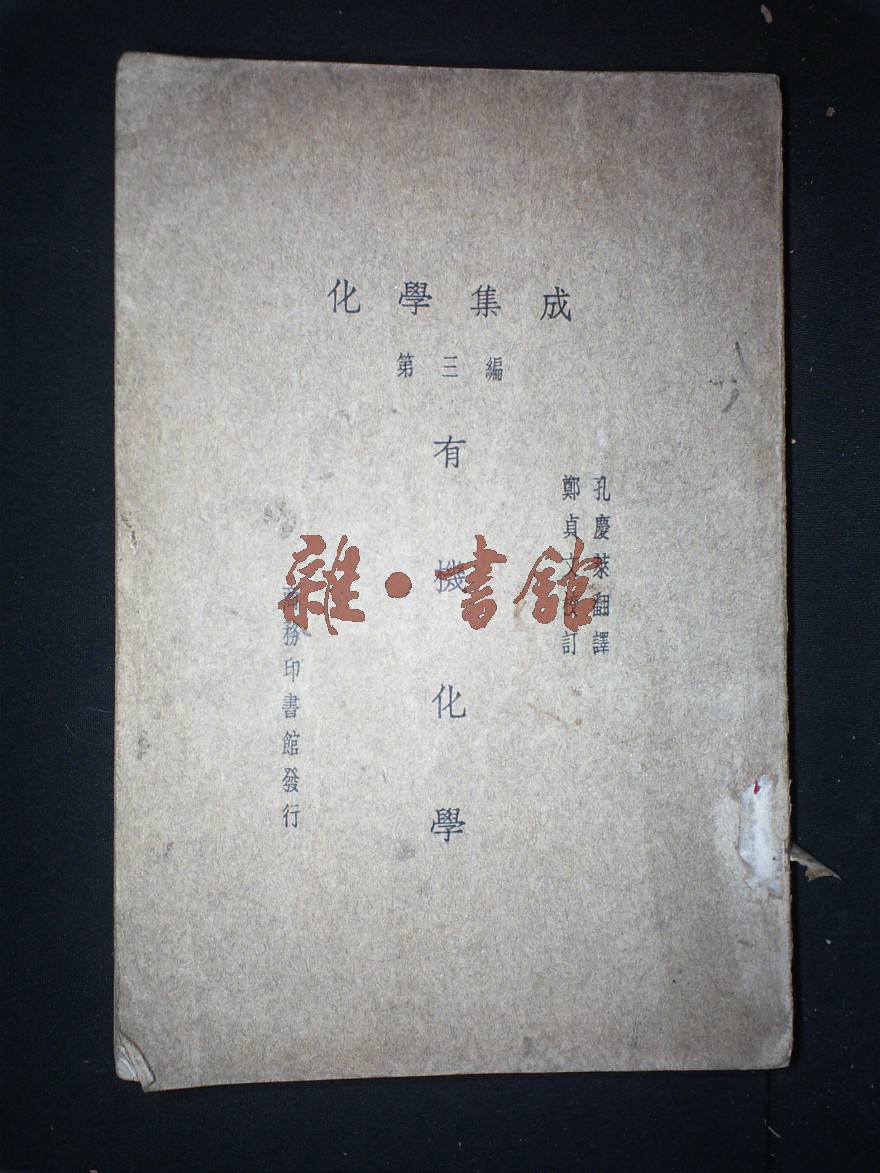 化學集成
第三編
孔慶萊翻譯
鄭貞文校訂
有機化學
商務印書館發行
雜·書館